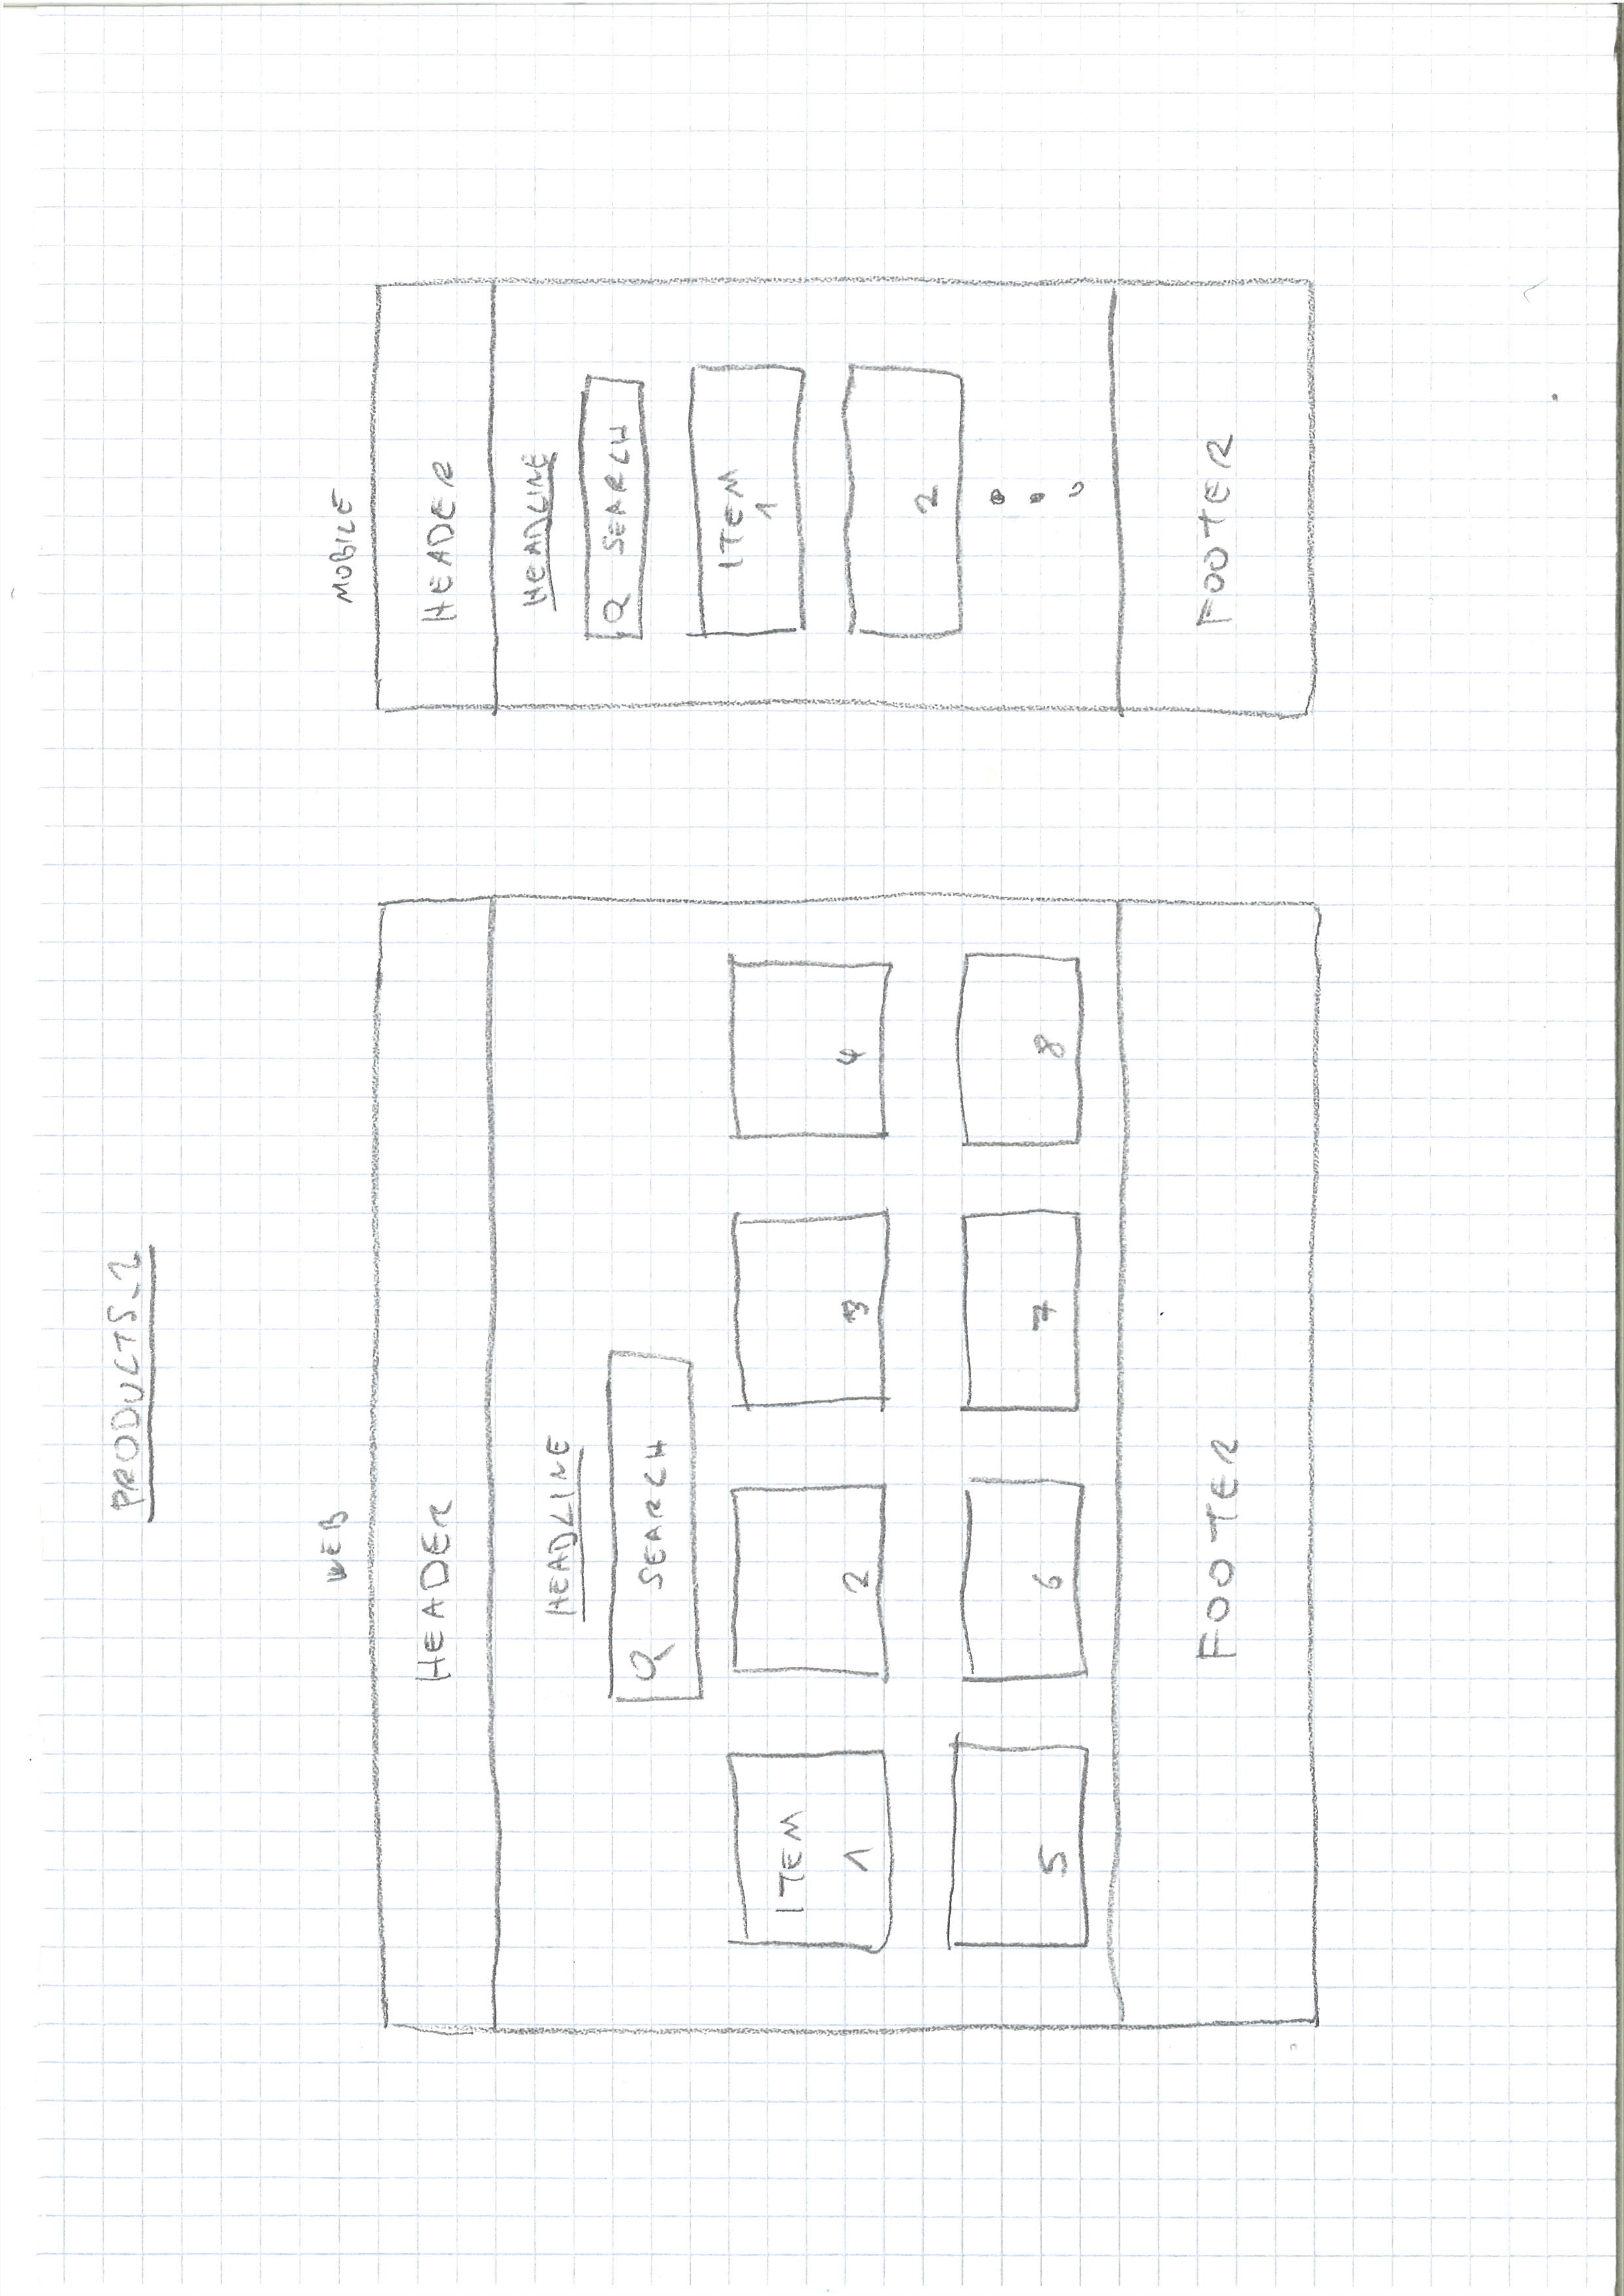 PRODUCTS_2
WEB
HEADER
HEADLINE
SEARCH
ITEM
1
2
3
4
5
6
7
8
FOOTER
MOBILE
HEADER
HEADLINE
SEARCH
ITEM
1
2
FOOTER